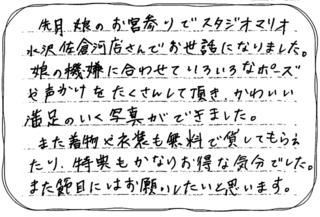 先月娘のお宮参りでスタジオマリオ
水沢佐倉河店さんでお世話になりました。
娘の機嫌に合わせていろいろなポーズ
や声かけをたくさんして頂き、かわいい
満足のいく写真ができました。
また着物や衣装も無料で貸してもらえ
たり、特典もかなりお得な気分でした。
また節目にはお願いしたいと思います。